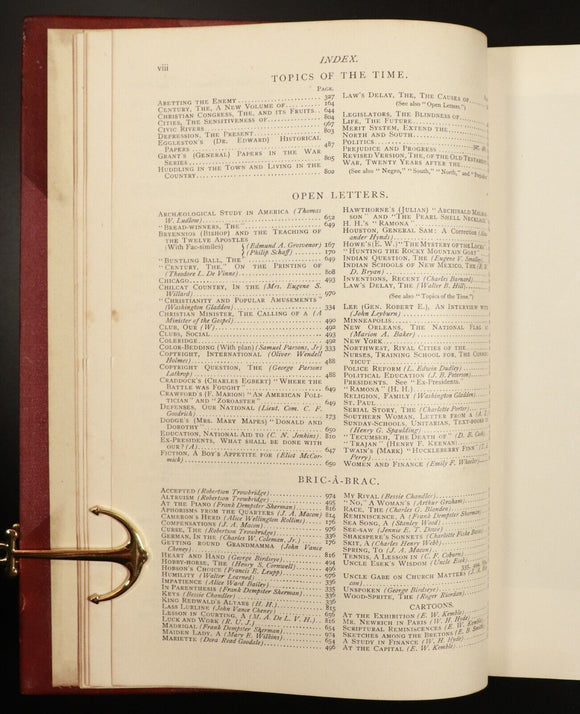 viii
INDEX.
TOPICS OF THE TIME.
PAGE.
ABETTING THE ENEMY 327
CENTURY, THE, A NEW VOLUME OF 164
CHRISTIAN CONGRESS, THE, AND ITS FRUITS 644
CITIES, THE SENSITIVENESS OF 804
CIVIC RIVERS 967
DEPRESSION, THE PRESENT 803
EGGLESTON'S (DR. EDWARD) HISTORICAL
PAPERS 487
GRANT'S (GENERAL) PAPERS IN THE WAR
SERIES 805
HUDDLING IN THE TOWN AND LIVING IN THE
COUNTRY 802
LAW'S DELAY, THE, THE CAUSES OF
(See also "Open Letters.")
LEGISLATORS, THE BLINDNESS OF
LIFE, THE FUTURE
MERIT SYSTEM, EXTEND THE
NORTH AND SOUTH
POLITICS
PREJUDICE AND PROGRESS
REVISED VERSION, THE, OF THE OLD TESTAMENT
WAR, TWENTY YEARS AFTER THE
(See also "Negro," "South," "North," and
OPEN LETTERS.
ARCHÆOLOGICAL STUDY IN AMERICA (Thomas
W. Ludlow) 652
"BREAD-WINNERS, THE" 649
BRYENNIOS (BISHOP) AND THE TEACHING OF
THE TWELVE APOSTLES
(With Fac-similes) (Edmund A. Grosvenor) 167
(Philip Schaff) 170
"BUNTLING BALL, THE" 649
"CENTURY, THE," ON THE PRINTING OF
(Theodore L. De Vinne) 808
CHICAGO 493
CHILCAT COUNTRY, IN THE (Mrs. Eugene S.
Willard) 970
"CHRISTIANITY AND POPULAR AMUSEMENTS"
(Washington Gladden) 334
CHRISTIAN MINISTER, THE CALLING OF A (A
Minister of the Gospel) 490
CLUB, OUR (W) 492
CLUBS, SOCIAL 493
COLERIDGE 492
COLOR-BEDDING (With plan) (Samuel Parsons, Jr) 333
COPYRIGHT, INTERNATIONAL (Oliver Wendell
Holmes) 488
COPYRIGHT QUESTION, THE (George Parsons
Lathrop) 488
CRADDOCK'S (CHARLES EGBERT) "WHERE THE
BATTLE WAS FOUGHT" 649
CRAWFORD'S (F. MARION) "AN AMERICAN POLI-
TICIAN" AND "ZOROASTER" 649
DEFENSES, OUR NATIONAL (Lieut. Com. C. F.
Goodrich) 173
DODGE'S (MRS. MARY MAPES) "DONALD AND
DOROTHY" 650
EDUCATION, NATIONAL AID TO (C. N. Jenkins) 810
EX-PRESIDENTS, WHAT SHALL BE DONE WITH
OUR? (A) 647
FICTION, A BOY'S APPETITE FOR (Eliot McCor-
mick) 650
HAWTHORNE'S (JULIAN) "ARCHIBALD
SON" AND "THE PEARL SHELL NECKLACE"
H. H.'S "RAMONA"
HOUSTON, GENERAL SAM: A CORRECTION
ander Hynds)
HOWE'S (E. W.) "THE MYSTERY OF THE LOCKS"
"HUNTING THE ROCKY MOUNTAIN GOAT"
INDIAN QUESTION, THE (Eugene V. Smalley)
INDIAN SCHOOLS OF NEW MEXICO, THE
D. Bryan)
INVENTIONS, RECENT (Charles Barnard)
LAW'S DELAY, THE (Walter B. Hill)
(See also "Topics of the Time.")
LEE (GEN. ROBERT E.), AN INTERVIEW WITH
(John Leyburn)
MINNEAPOLIS
NEW ORLEANS, THE NATIONAL
(Marion A. Baker)
NEW YORK
NORTHWEST, RIVAL CITIES OF THE
NURSES, TRAINING SCHOOL FOR, THE CONNEC-
TICUT
POLICE REFORM (L. Edwin Dudley)
POLITICAL EDUCATION (J. B. Peterson)
PRESIDENTS. See "Ex-Presidents."
"RAMONA" (H. H.)
RELIGION, FAMILY (Washington Gladden)
ST. PAUL
SERIAL STORY, THE (Charlotte Porter)
SOUTHERN WOMAN, LETTER FROM A
SUNDAY-SCHOOLS, UNITARIAN, TEXT-BOOKS
(Henry G. Spaulding)
"TECUMSEH, THE DEATH OF" (D. B. Cook)
"TRAJAN" (HENRY F. KEENAN)
TWAIN'S (MARK) "HUCKLEBERRY FINN"
Perry)
WOMEN AND FINANCE (Emily F. Wheeler)
BRIC-À-BRAC.
ACCEPTED (Robertson Trowbridge) 974
ALTRUISM (Robertson Trowbridge) 495
AT THE PIANO (Frank Dempster Sherman) 816
APHORISMS FROM THE QUARTERS (J. A. Macon) 814
CAMERON'S HERD (Alice Wellington Rollins) 176
COMPENSATIONS (J. A. Macon) 176
CURSE, THE (Robertson Trowbridge) 976
GERMAN, IN THE (Charles W. Coleman, Jr.) 336
GETTING ROUND GRANDMAMMA (John Vance
Cheney) 976
HEART AND HAND (George Birdseye) 816
HOBBY-HORSE, THE (Henry S. Cornwell) 494
HOBSON'S CHOICE (Francis E. Leupp) 496
HUMILITY (Walter Learned) 976
IMPATIENCE (Alice Ward Bailey) 336
IN PARENTHESIS (Frank Dempster Sherman) 335
KEYS (Bessie Chandler) 336
KING REDWALD'S ALTARS (H. H.) 335
LASS LURLINE (John Vance Cheney) 815
LESSON IN COURTING, A (M. A. De L. V. H.) 656
LUCK AND WORK (R. U. J.) 816
MADRIGAL (Frank Dempster Sherman) 654
MAIDEN LADY, A (Mary E. Wilkins) 974
MARIETTE (Dora Read Goodale) 654
MY RIVAL (Bessie Chandler)
"NO," A WOMAN'S (Arthur Graham)
RACE, THE (Charles G. Blanden)
REMINISCENCE, A (Frank Dempster Sherman)
SEA SONG, A (Stanley Wood)
SEE-SAW (Jennie E. T. Dowe)
SHAKSPERE'S SONNETS (Charlotte Fiske Bates)
SKIT, A (Charles Henry Webb)
SPRING, TO (J. A. Macon)
TENNIS, A LESSON IN (C. F. Coburn)
UNCLE ESEK'S WISDOM (Uncle Esek)
UNCLE GABE ON CHURCH MATTERS
UNSPOKEN (George Birdseye)
WOOD-SPRITE, THE (Roger Riordan)
CARTOONS.
AT THE EXHIBITION (E. W. Kemble)
MR. NEWRICH IN PARIS (W. H. Hyde)
SCRIPTURAL REMINISCENCES (E. W. Kemble)
SKETCHES AMONG THE BRETONS (E. B.
A STUDY IN FINANCE (W. H. Hyde)
AT THE CAPITAL (E. W. Kemble) 496